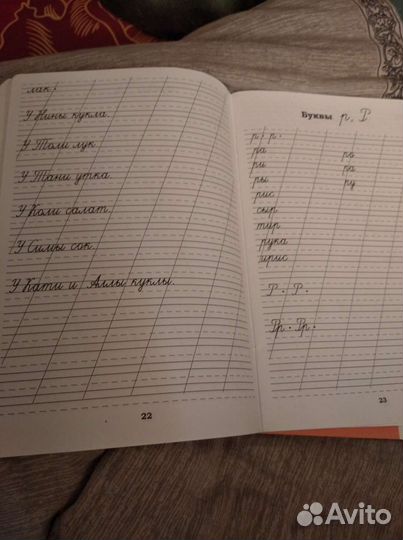 лак.
У Нины кукла.
У Толи лук.
У Тани утка.
У Коли салат.
У Симы сок.
У Кати и Аллы куклы.
22
Буквы р, Р
р, р.
ра ро
ри ра
ры ру
рис
сыр
тир
рука
ирис
Р. Р.
Рр. Рр.
23
Avito